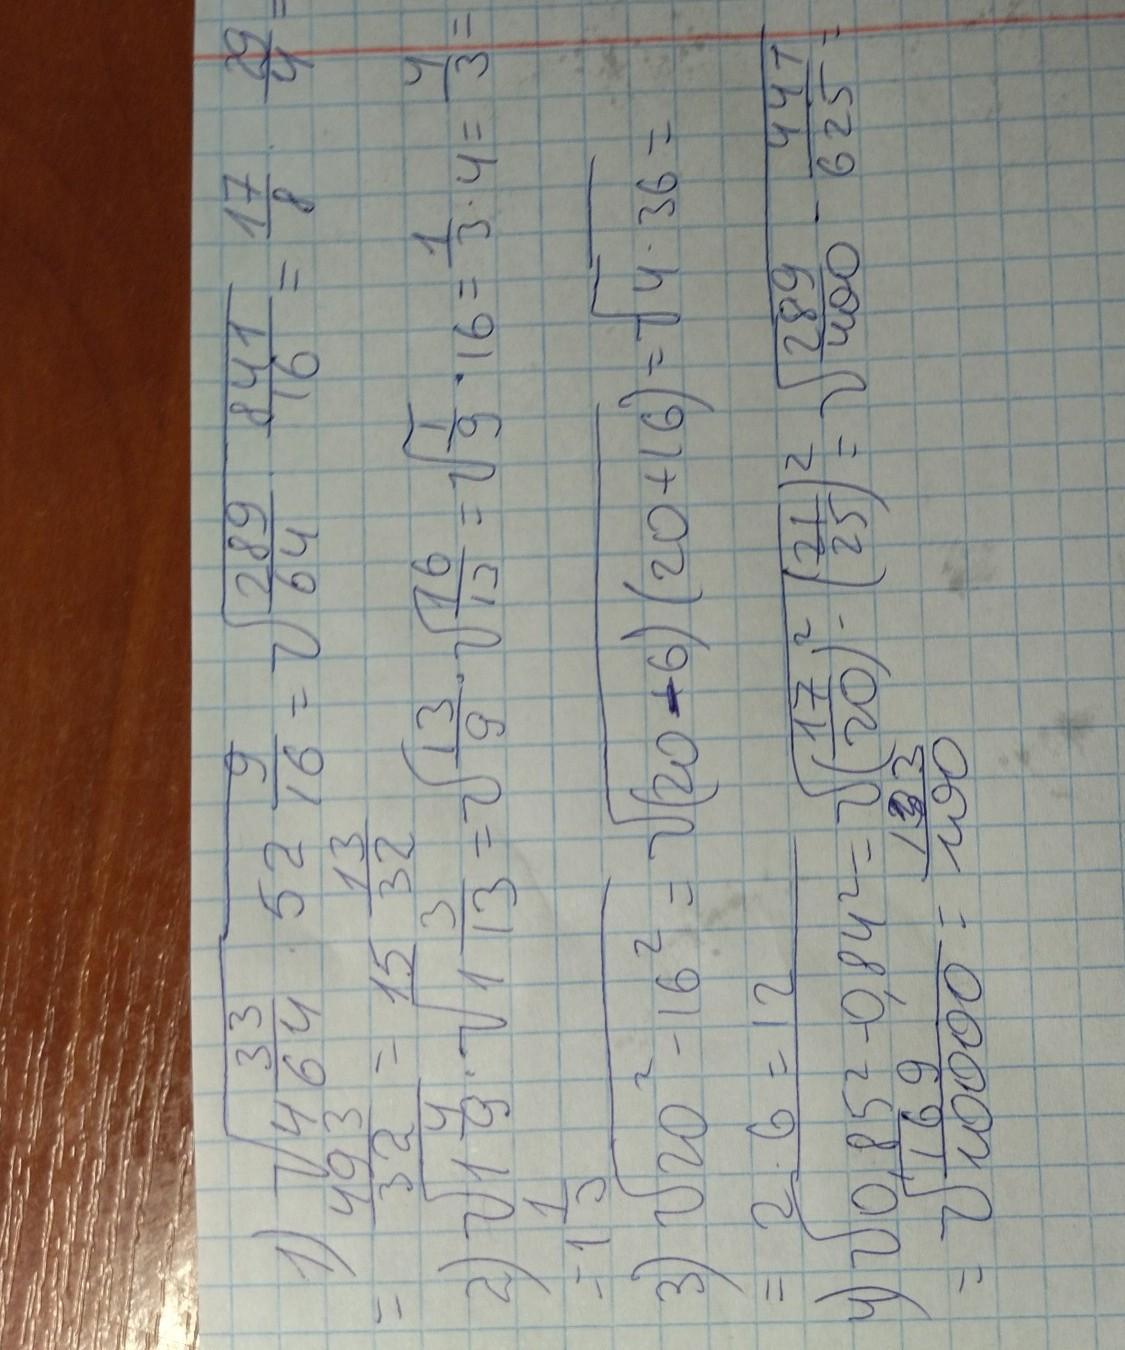 1) √(4 33/64 · 52 9/16) = √(289/64 · 841/16) = 17/8 · 29/4 =
= 493/32 = 15 13/32
2) √(1 4/9) · √(1 3/13) = √(13/9) · √(16/13) = √(1/9) · 16 = 1/3 · 4 = 4/3 =
= 1 1/3
3) √(20² - 16²) = √((20-6)(20+16)) = √(4 · 36) =
= 2 · 6 = 12
4) √(0,85² - 0,84²) = √((17/20)² - (21/25)²) = √(289/400 - 441/625) =
= √(169/10000) =